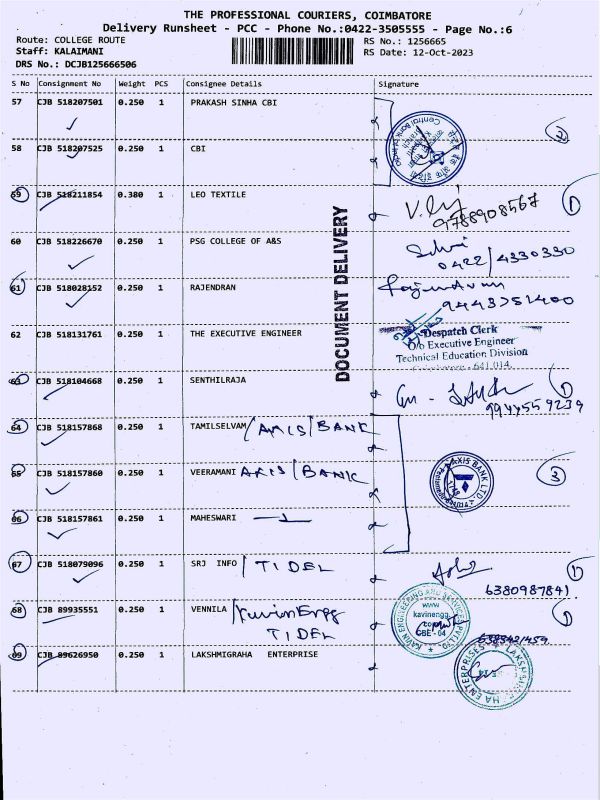 THE PROFESSIONAL COURIERS, COIMBATORE
Delivery Runsheet - PCC - Phone No.:0422-3505555 - Page No.:6
Route: COLLEGE ROUTE
RS No.: 1256665
Staff: KALAIMANI
RS Date: 12-Oct-2023
DRS No.: DCJB125666506
S No Consignment No Weight PCS Consignee Details Signature
57 CJB 518207501 0.250 1 PRAKASH SINHA CBI
Central Bank of India
2
58 CJB 518207525 0.250 1 CBI
59 CJB 518211854 0.380 1 LEO TEXTILE
9788908567 1
60 CJB 518226670 0.250 1 PSG COLLEGE OF A&S
0422/4330330
61 CJB 518028152 0.250 1 RAJENDRAN
9443751400
DOCUMENT DELIVERY
62 CJB 518131761 0.250 1 THE EXECUTIVE ENGINEER
Despatch Clerk
O/o Executive Engineer
Technical Education Division
Coimbatore - 641 014.
63 CJB 518104668 0.250 1 SENTHILRAJA
1
64 CJB 518157868 0.250 1 TAMILSELVAM / AXIS / BANK
65 CJB 518157860 0.250 1 VEERAMANI AXIS / BANK
AXIS BANK LTD
3
66 CJB 518157861 0.250 1 MAHESWARI
67 CJB 518079096 0.250 1 SRJ INFO / TIDEL
6380987841 1
68 CJB 89935551 0.250 1 VENNILA / Kavin Engg
TIDEL
KAVIN ENGINEERING AND SERVICES PVT LTD
www
kavinengg
.com
CBE - 04
1
69 CJB 89626950 0.250 1 LAKSHMIGRAHA ENTERPRISE
LAKSHMIGRAHA ENTERPRISES